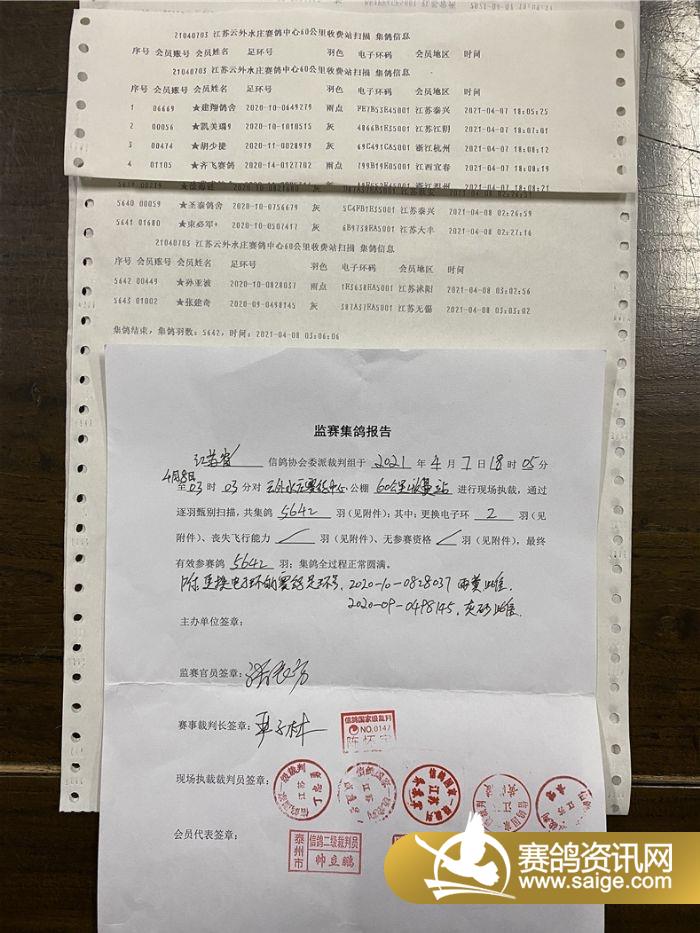 21040703 江苏云外水庄赛鸽中心60公里收费站扫描 集鸽信息
序号 会员账号 会员姓名 足环号 羽色 电子环码 会员地区 时间
21040703 江苏云外水庄赛鸽中心60公里收费站扫描 集鸽信息
序号 会员账号 会员姓名 足环号 羽色 电子环码 会员地区 时间
1 06669 ★建翔鸽舍 2020-10-0649279 雨点 FE7B53E45001 江苏泰兴 2021-04-07 18:05:25
2 00056 ★凯美瑞9 2020-10-1010515 灰 4866B1E35001 江苏江阴 2021-04-07 18:07:01
3 00474 ★胡少捷 2020-11-0028979 灰 69C491CA5001 浙江杭州 2021-04-07 18:08:12
4 01105 ★齐飞赛鸽 2020-14-0127702 雨点 799B19EA5001 江西宜春 2021-04-07 18:08:19
5640 00059 ★圣泰鸽舍 2020-10-0756679 灰 5C4FB1E35001 江苏泰兴 2021-04-08 02:26:59
5641 01680 ★束必军+ 2020-10-0507417 灰 6B9738EA5001 江苏大丰 2021-04-08 02:27:16
21040703 江苏云外水庄赛鸽中心60公里收费站扫描 集鸽信息
序号 会员账号 会员姓名 足环号 羽色 电子环码 会员地区 时间
5642 00449 ★孙亚波 2020-10-0828037 雨点 1E3638EA5001 江苏沭阳 2021-04-08 03:02:56
5643 01002 ★张建奇 2020-09-0498145 灰 387A37EA5001 江苏无锡 2021-04-08 03:03:02
集鸽结束，集鸽羽数：5642，时间：2021-04-08 03:06:06
监赛集鸽报告
江苏省 信鸽协会委派裁判组于 2021 年 4 月 7 日 18 时 05 分
4月8日
至 03 时 03 分对 云外水庄赛鸽中心 公棚 60公里收费站 进行现场执裁，通过
逐羽甄别扫描，共集鸽 5642 羽（见附件）；其中：更换电子环 2 羽（见
附件）、丧失飞行能力 羽（见附件）、无参赛资格 羽（见附件），最终
有效参赛鸽 5642 羽；集鸽全过程正常圆满。
附：更换电子环的赛鸽足环号，2020-10-0828037 雨 雄，
2020-09-0498145，灰 雄。
主办单位签章：
监赛官员签章：
赛事裁判长签章：
信鸽国家级裁判
NO.0147
陈怀宝
现场执裁裁判员签章：
会员代表签章：
泰州市
信鸽二级裁判员
帅立鹏
赛鸽资讯网
www.saige.com